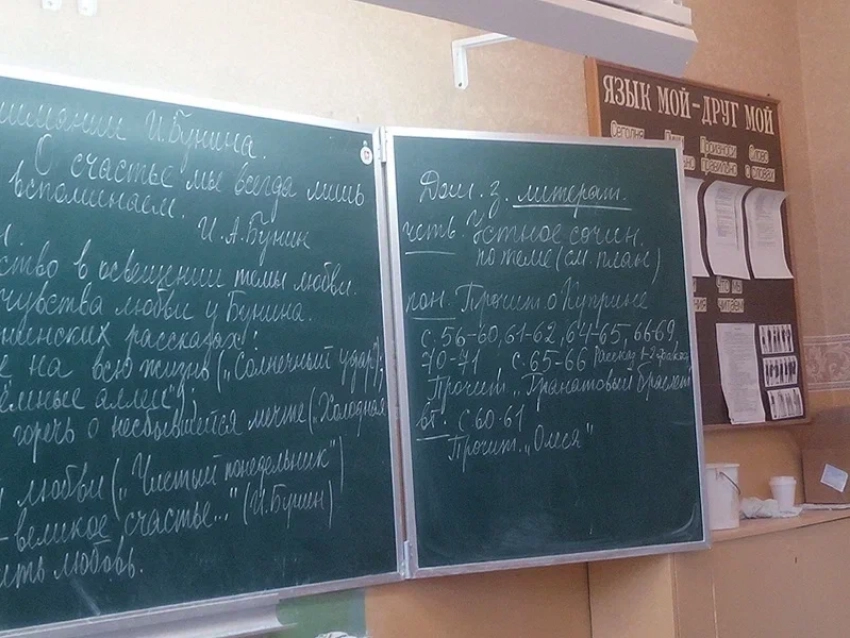 И.Бунина.
О счастье мы всегда лишь
вспоминаем.
И.А.Бунин
в освещении темы любви.
чувства любви у Бунина.
рассказах:
на всю жизнь („Солнечный удар");
аллеи");
горечь о несбывшейся мечте („Холодная
любви („Чистый понедельник")
–великое счастье..." (И.Бунин)
любовь.
Дом. з. литерат.
четв. Устное сочин.
по теме (см. план)
пон. Прочит. о Куприне
с. 56-60, 61-62, 64-65, 66-69
70-71 с. 65-66 Рассказ
Прочит. „Гранатовый браслет"
вт. с 60-61
Прочит. „Олеся"
ЯЗЫК МОЙ–ДРУГ МОЙ
Сегодня
Произноси Слово
правильно о словах
Что мы
читаем